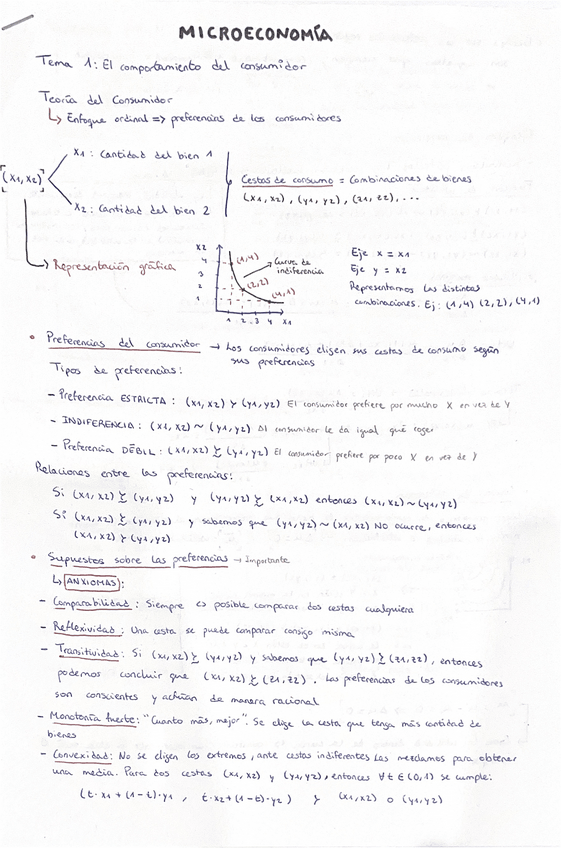 MICROECONOMÍA
Tema 1: El comportamiento del consumidor
Teoría del Consumidor
↳ Enfoque ordinal => preferencias de los consumidores
(x1, x2)
x1: Cantidad del bien 1
x2: Cantidad del bien 2
Cestas de consumo = Combinaciones de bienes
(x1, x2), (y1, y2), (z1, z2), ...
Representación gráfica
x2
4
3
2
(1,4)
(2,2)
(4,1)
Curva de
indiferencia
1 2 3 4 x1
Eje x = x1
Eje y = x2
Representamos las distintas
combinaciones. Ej: (1,4) (2,2), (4,1)
• Preferencias del consumidor → Los consumidores eligen sus cestas de consumo según
sus preferencias
Tipos de preferencias:
- Preferencia ESTRICTA: (x1, x2) ≻ (y1, y2) El consumidor prefiere por mucho X en vez de Y
- INDIFERENCIA: (x1, x2) ~ (y1, y2) Al consumidor le da igual qué coger
- Preferencia DÉBIL: (x1, x2) ≽ (y1, y2) El consumidor prefiere por poco X en vez de Y
Relaciones entre las preferencias:
Si (x1, x2) ≽ (y1, y2) y (y1, y2) ≽ (x1, x2) entonces (x1, x2) ~ (y1, y2)
Si (x1, x2) ≽ (y1, y2) y sabemos que (y1, y2) ~ (x1, x2) NO ocurre, entonces
(x1, x2) ≻ (y1, y2)
• Supuestos sobre las preferencias → Importante
↳ ANXIOMAS:
- Comparabilidad: Siempre es posible comparar dos cestas cualquiera
- Reflexividad: Una cesta se puede comparar consigo misma
- Transitividad: Si (x1, x2) ≽ (y1, y2) y sabemos que (y1, y2) ≽ (z1, z2), entonces
podemos concluir que (x1, x2) ≽ (z1, z2). Las preferencias de los consumidores
son conscientes y actúan de manera racional
- Monotonía fuerte: "Cuanto más, mejor". Se elige la cesta que tenga más cantidad de
bienes
- Convexidad: No se eligen los extremos, ante cestas indiferentes las mezclamos para obtener
una media. Para dos cestas (x1, x2) y (y1, y2), entonces ∀ t ∈ (0,1) se cumple:
(t·x1 + (1-t)·y1, t·x2 + (1-t)·y2) ≻ (x1, x2) o (y1, y2)